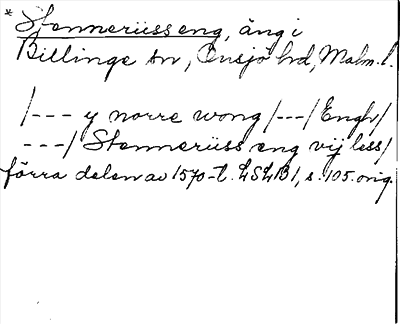 * Stenneriiss eng, äng i
Billinge sn, Onsjö hd, Malm. l.
/--- y norre wong /---/ Engh/
---/ Stenneriiss eng vij less/
förra delen av 1570-t. LSLB1, s. 105. orig.